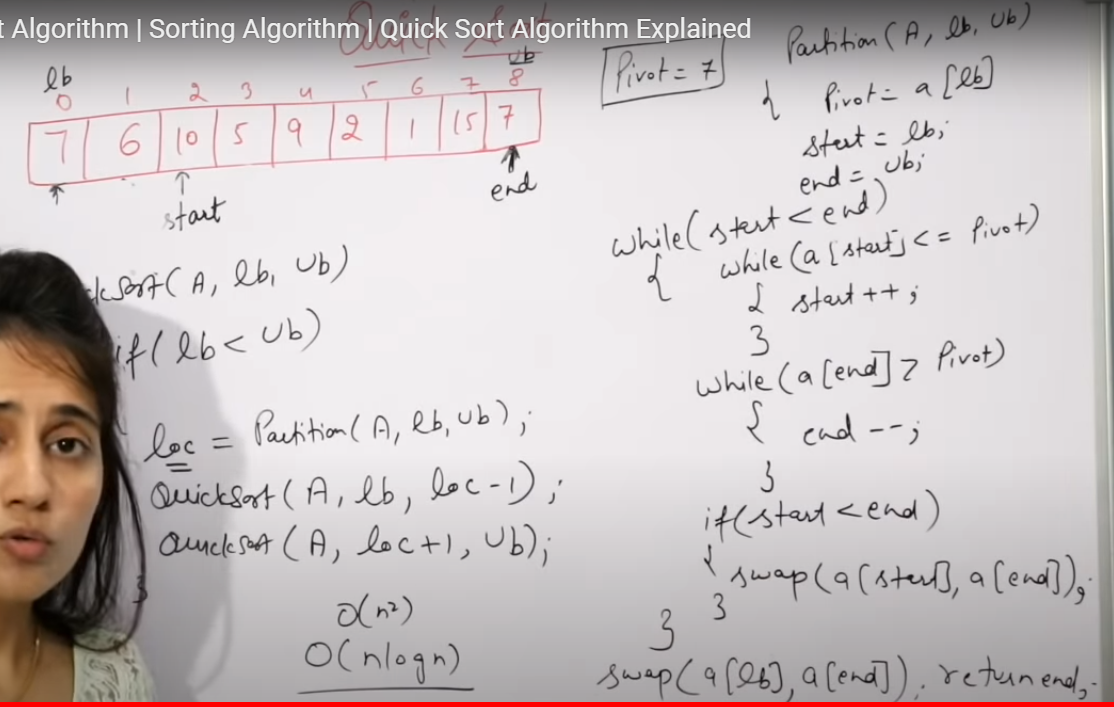 t Algorithm | Sorting Algorithm | Quick Sort Algorithm Explained
Quick Sort
lb
ub
0 1 2 3 4 5 6 7 8
7 6 10 5 9 2 1 15 7
start
end
Pivot = 7
ckSort(A, lb, Ub)
if(lb < Ub)
loc = Partition(A, lb, Ub);
QuickSort(A, lb, loc-1);
QuickSort(A, loc+1, Ub);
}
O(n²)
O(nlogn)
Partition(A, lb, Ub)
{ Pivot = a[lb]
start = lb;
end = Ub;
while(start < end)
{ while(a[start] <= Pivot)
{ start++;
}
while(a[end] > Pivot)
{ end--;
}
if(start < end)
{ swap(a[start], a[end]);
}
}
swap(a[lb], a[end]). return end;